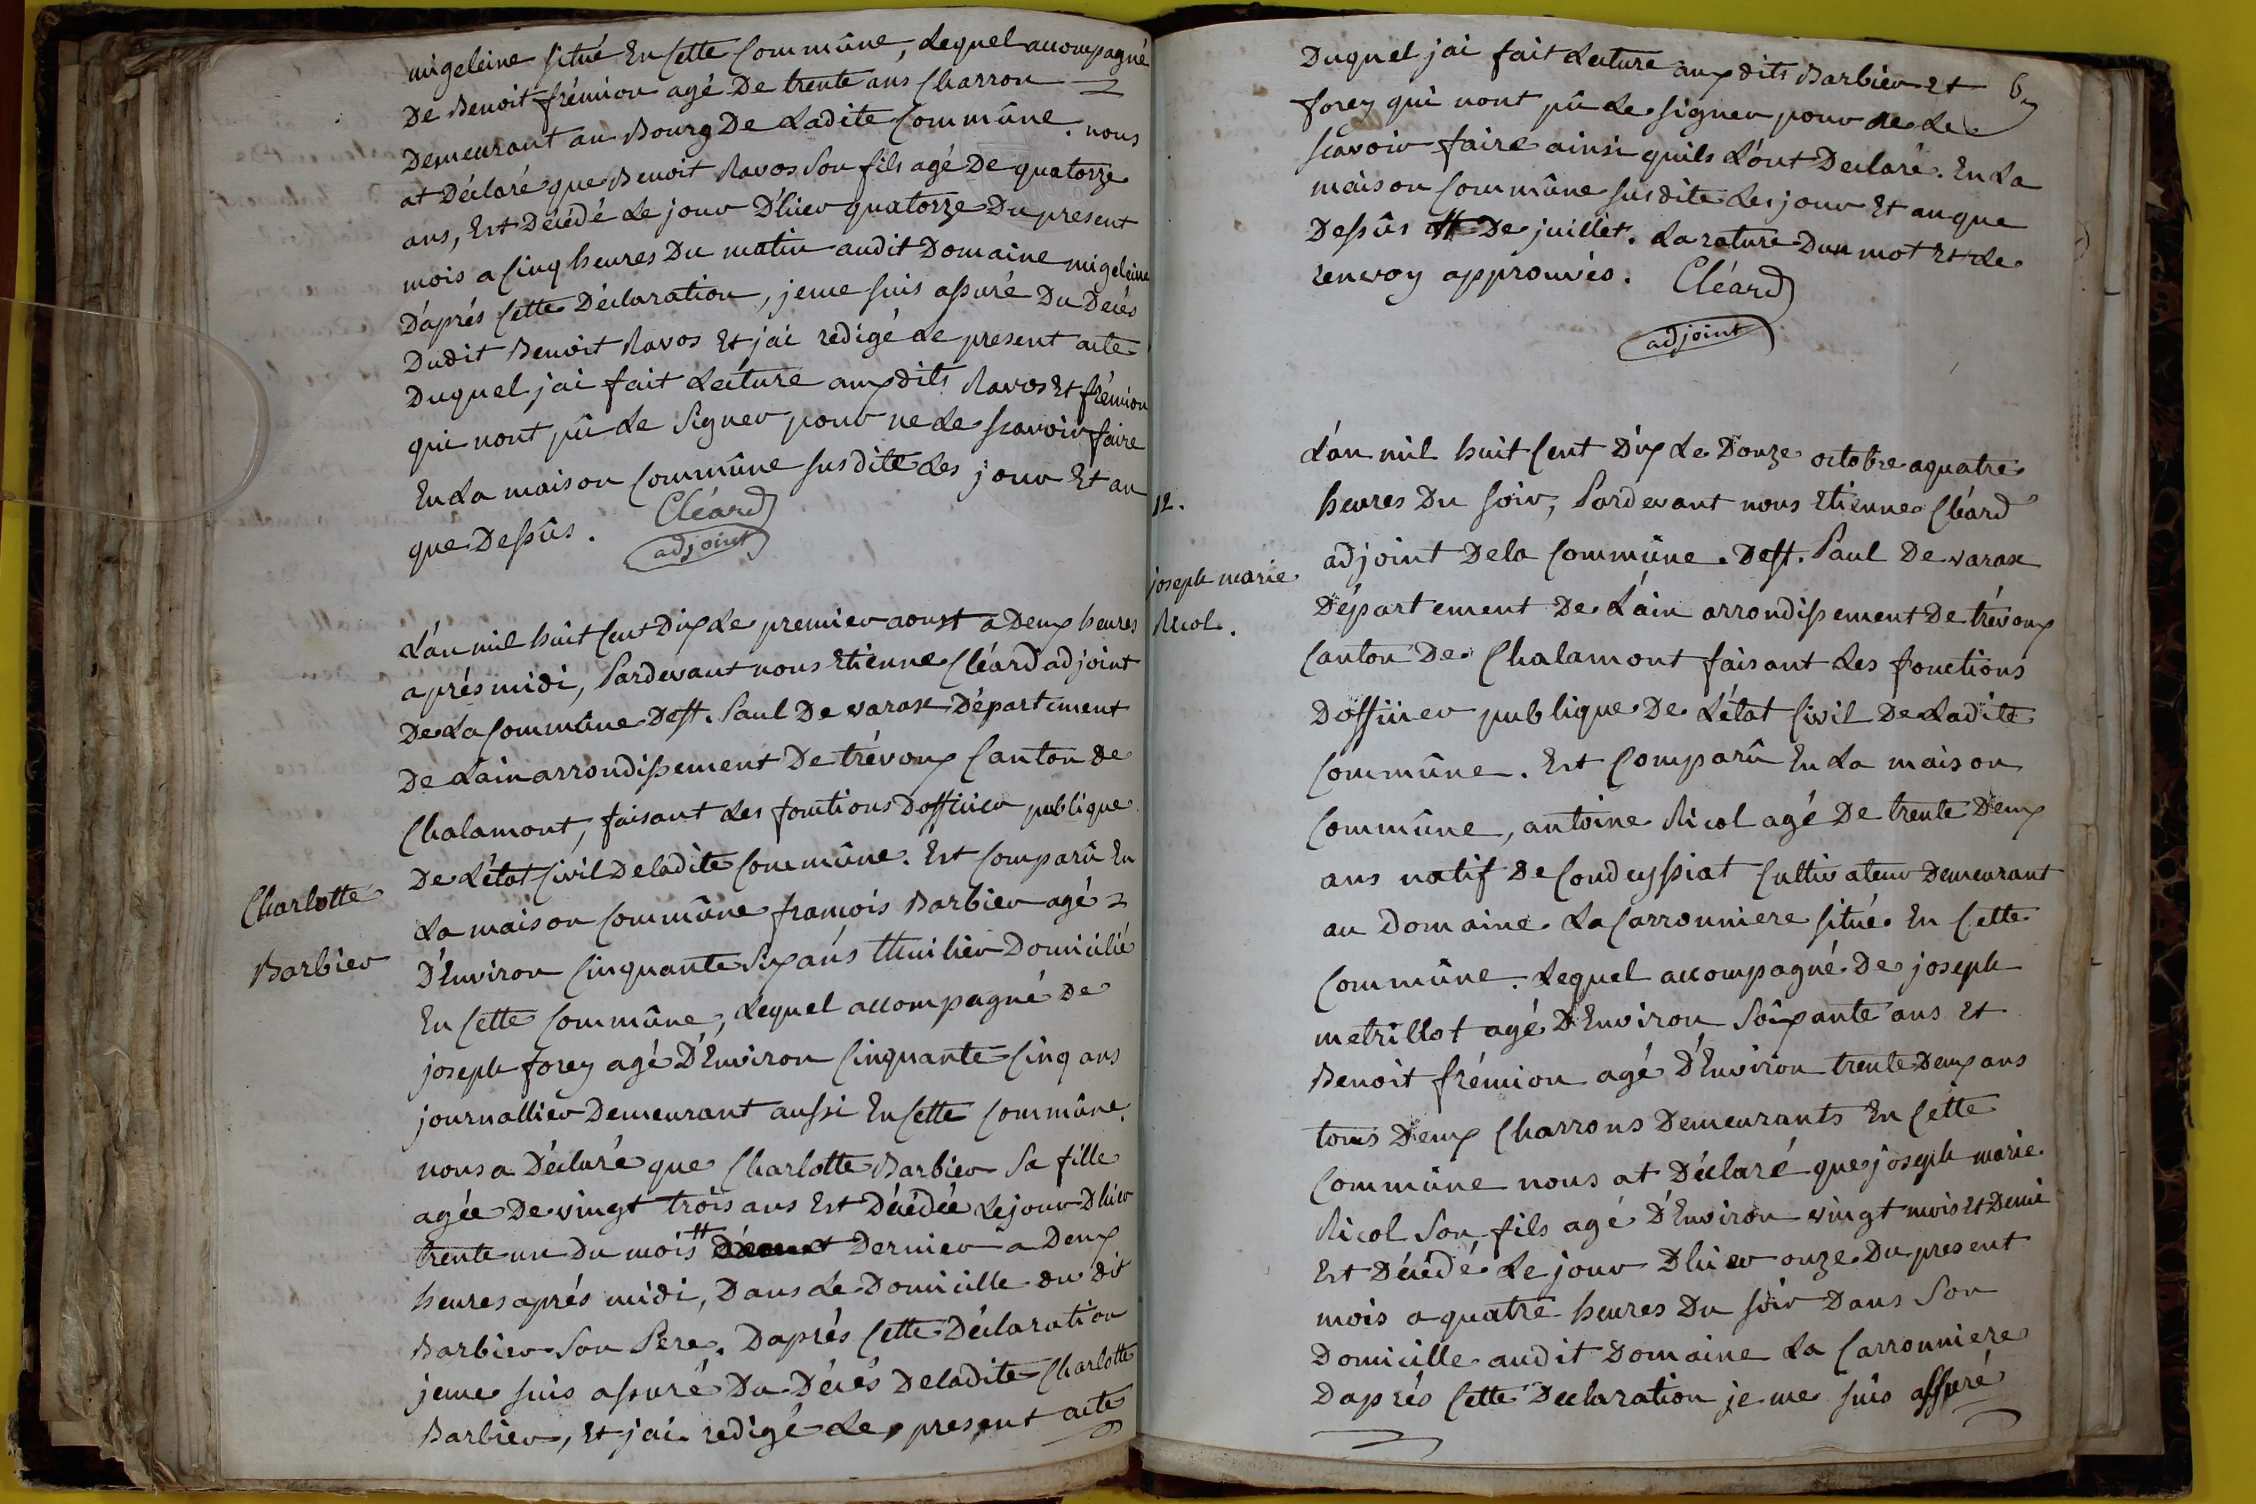 migeleine situé En Cette Commûne, Lequel accompagné
De Benoit frémion agé De trente ans Charron
Demeurant au Bourg De Ladite Commûne. nous
at Déclaré que Benoit Ravos Son fils agé De quatorze
ans, Est Décédé Le jour D'hier quatorze Du present
mois a Cinq heures Du matin audit Domaine migeleine
D'aprés Cette Déclaration, je me suis assuré Du Decés
Dudit Benoit Ravos Et j'ai redigé Le present acte
Duquel j'ai fait Lecture aux dits Ravos Et frémion
qui nont pû Le Signer pour ne Le scavoir faire
En La maison Commûne susdite Les jour Et an
que Dessûs. Cléard
adjoint
Charlotte
Barbier
L'an mil huit Cent Dix Le premier aoust a Deux heures
aprés midi, Pardevant nous Etienne Cléard adjoint
De La Commûne De St. Paul De varax Département
De Lain arrondissement De trévoux Canton de
Chalamont, faisant Les fonctions Dofficier publique
De L'état Civil De ladite Commûne. Est Comparû En
La maison Commûne françois Barbier agé
D'Environ Cinquante Six ans thuilier Domicilié
En Cette Commûne, Lequel accompagné De
joseph forey agé D'Environ Cinquante Cinq ans
journallier Demeurant aussi En Cette Commûne.
nous a Déclaré que Charlotte Barbier Sa fille
agée De vingt trois ans Est Décédée Le jour D'hier
trente un Du mois # Dernier a Deux
heures aprés midi, Dans Le Domicille du dit
Barbier Son Pere. D'aprés Cette Déclaration
je me suis assuré Du Décés De ladite Charlotte
Barbier, Et j'ai redigé Le present acte
6
Duquel j'ai fait Lecture aux dits Barbier Et
forey qui nont pû Le signer pour ne Le
scavoir faire ainsi quils L'ont Declaré. En La
maison Commûne susdite Les jour Et an que
Dessûs # De juillet. La rature Dun mot Et Le
renvoy approuvés. Cléard
adjoint
12.
joseph marie
Ricol.
L'an mil huit Cent Dix Le Douze octobre a quatre
heures Du soir, Pardevant nous Etienne Cléard
adjoint De la Commûne De St. Paul De varax
Département De L'ain arrondissement De trévoux
Canton De Chalamont faisant Les fonctions
Dofficier publique De L'état Civil De Ladite
Commûne. Est Comparû En La maison
Commûne, antoine Ricol agé De trente Deux
ans natif de Condeyssiat Cultivateur Demeurant
au Domaine La Carronniere situé En Cette
Commûne. Lequel accompagné De joseph
metrillot agé D'Environ Soixante ans Et
Benoit frémion agé D'Environ trente Deux ans
tous Deux Charrons Demeurants En Cette
Commûne nous at Déclaré que joseph marie
Ricol Son fils agé D'Environ vingt mois Et Demi
Est Décédé Le jour D'hier onze Du present
mois a quatre heures Du soir Dans Son
Domicille audit Domaine La Carronniere
D'aprés Cette Declaration je me suis assuré